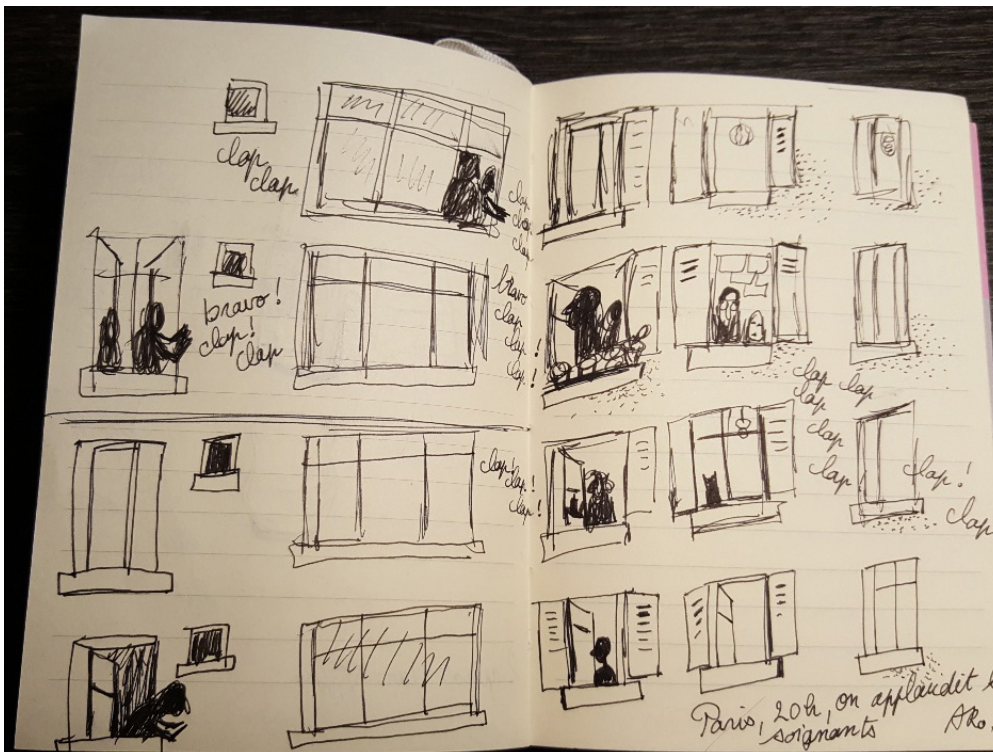 clap
clap
clap
clap
clap
bravo!
clap!
clap
bravo
clap
clap
clap!
clap!
clap!
clap!
clap!
clap clap
clap
clap
clap
clap!
clap
Paris, 20h, on applaudit
soignants
ARo.